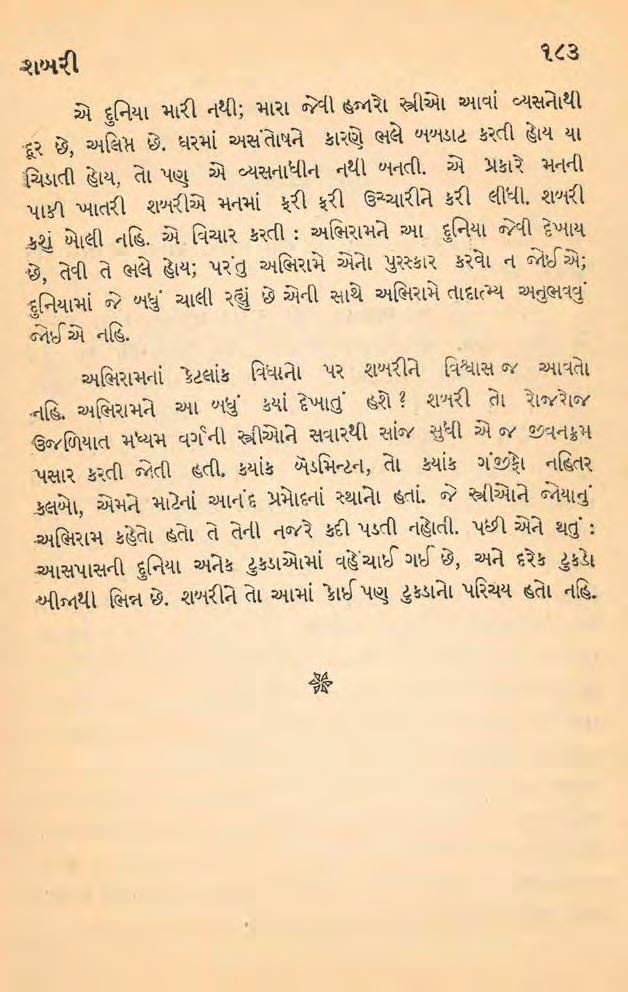 શબરી
૧૮૩
એ દુનિયા મારી નથી; મારા જેવી હજારો સ્ત્રીઓ આવાં વ્યસનોથી
દૂર છે, અલિપ્ત છે. ઘરમાં અસંતોષને કારણે ભલે બબડાટ કરતી હોય યા
ચિડાતી હોય, તો પણ એ વ્યસનાધીન નથી બનતી. એ પ્રકારે મનની
પાકી ખાતરી શબરીએ મનમાં ફરી ફરી ઉચ્ચારીને કરી લીધી. શબરી
કશું બોલી નહિ. એ વિચાર કરતી : અભિરામને આ દુનિયા જેવી દેખાય
છે, તેવી તે ભલે હોય; પરંતુ અભિરામે એનો પુરસ્કાર કરવો ન જોઈએ;
દુનિયામાં જે બધું ચાલી રહ્યું છે એની સાથે અભિરામે તાદાત્મ્ય અનુભવવું
જોઈએ નહિ.
અભિરામનાં કેટલાંક વિધાનો પર શબરીને વિશ્વાસ જ આવતો
નહિ. અભિરામને આ બધું કયાં દેખાતું હશે ? શબરી તો રોજરોજ
ઉજળિયાત મધ્યમ વર્ગની સ્ત્રીઓને સવારથી સાંજ સુધી એ જ જીવનક્રમ
પસાર કરતી જોતી હતી. કયાંક બેડમિન્ટન, તો કયાંક ગંજીફો નહિતર
કલબો, એમને માટેનાં આનંદ પ્રમોદનાં સ્થાનો હતાં. જે સ્ત્રીઓને જોયાનું
અભિરામ કહેતો હતો તે તેની નજરે કદી પડતી નહોતી. પછી એને થતું :
આસપાસની દુનિયા અનેક ટુકડાઓમાં વહેંચાઈ ગઈ છે, અને દરેક ટુકડો
બીજાથી ભિન્ન છે. શબરીને તો આમાં કોઈ પણ ટુકડાનો પરિચય હતો નહિ.